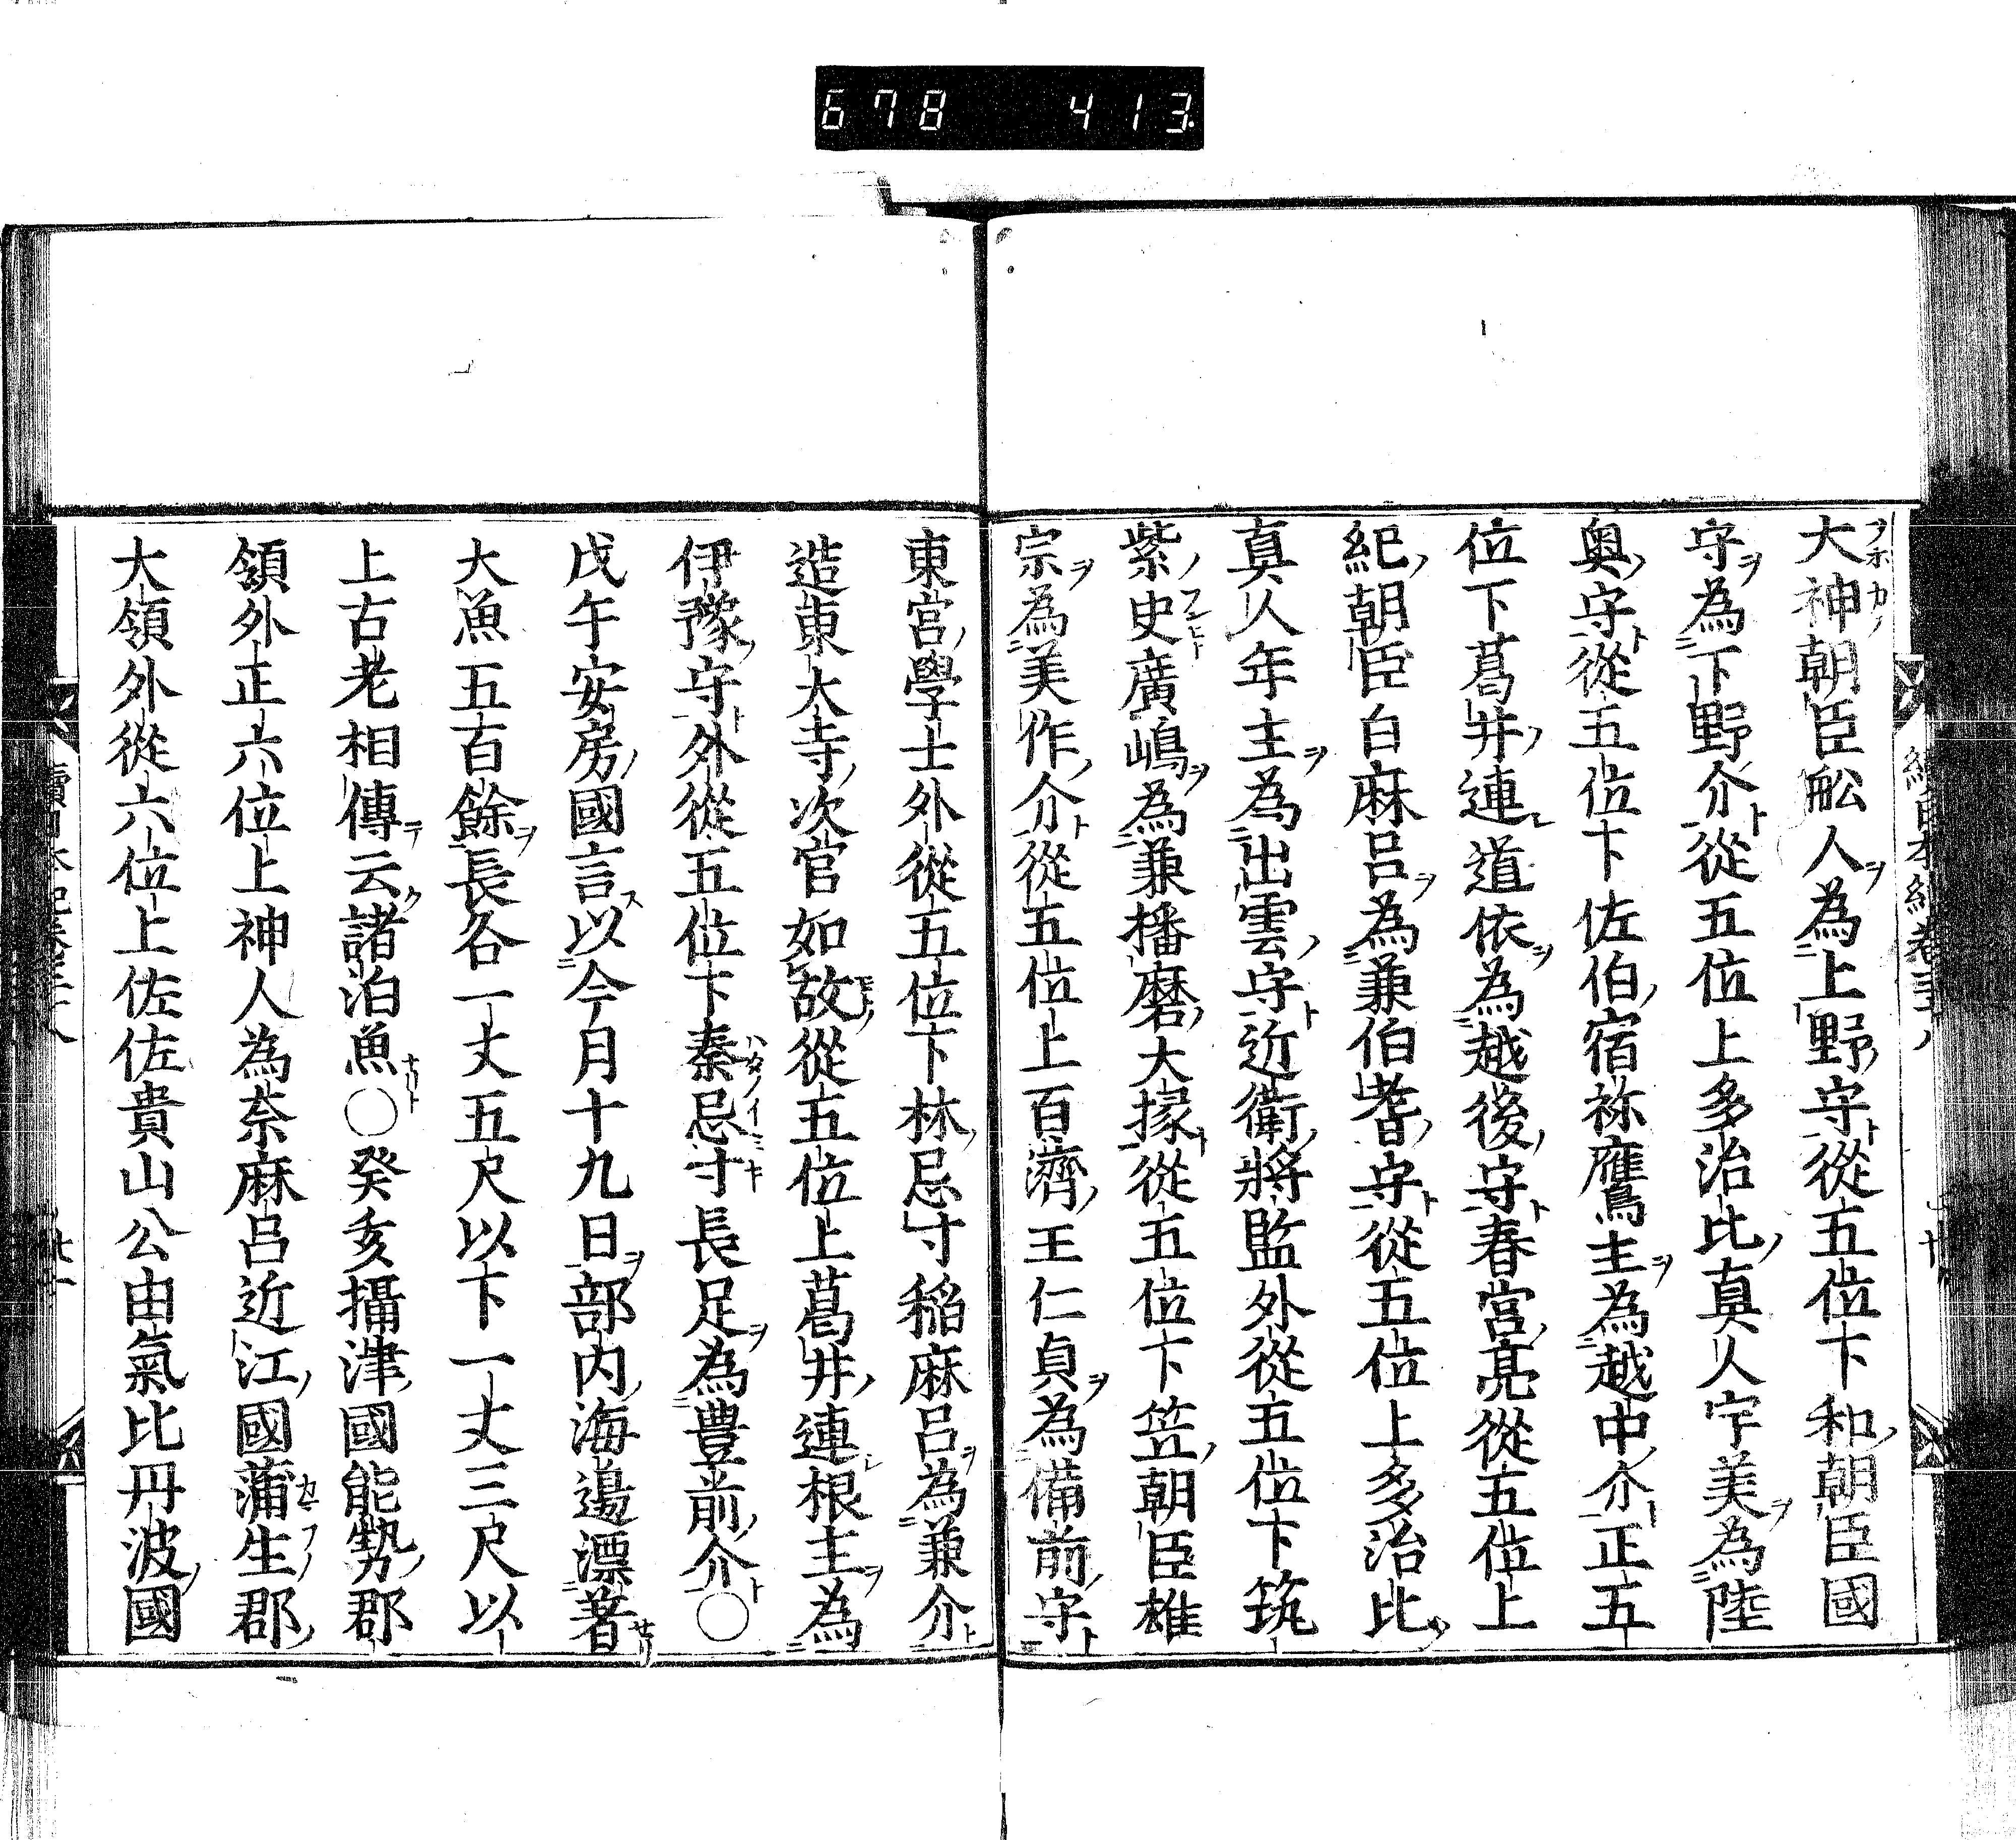 678 413
大神朝臣舩人為上野守從五位下和朝臣國
守為下野介從五位上多治比真人宇美為陸
奥守從五位下佐伯宿祢鷹主為越中介正五
位下葛井連道依為越後守春宮亮從五位上
紀朝臣白麻呂為兼伯耆守從五位上多治比
真人年主為出雲守近衛將監外從五位下筑
紫史廣嶋為兼播磨大掾從五位下笠朝臣雄
宗為美作介從五位上百濟王仁貞為備前守
東宮學士外從五位下林忌寸稲麻呂為兼介
造東大寺次官如故從五位上葛井連根主為
伊豫守外從五位下秦忌寸長足為豊前介〇
戊午安房國言以今月十九日部内海邊漂著
大魚五百餘長各一丈五尺以下一丈三尺以
上古老相傳云諸泊魚〇癸亥攝津國能勢郡
領外正六位上神人為奈麻呂近江國蒲生郡
大領外從六位上佐佐貴山公由氣比丹波國